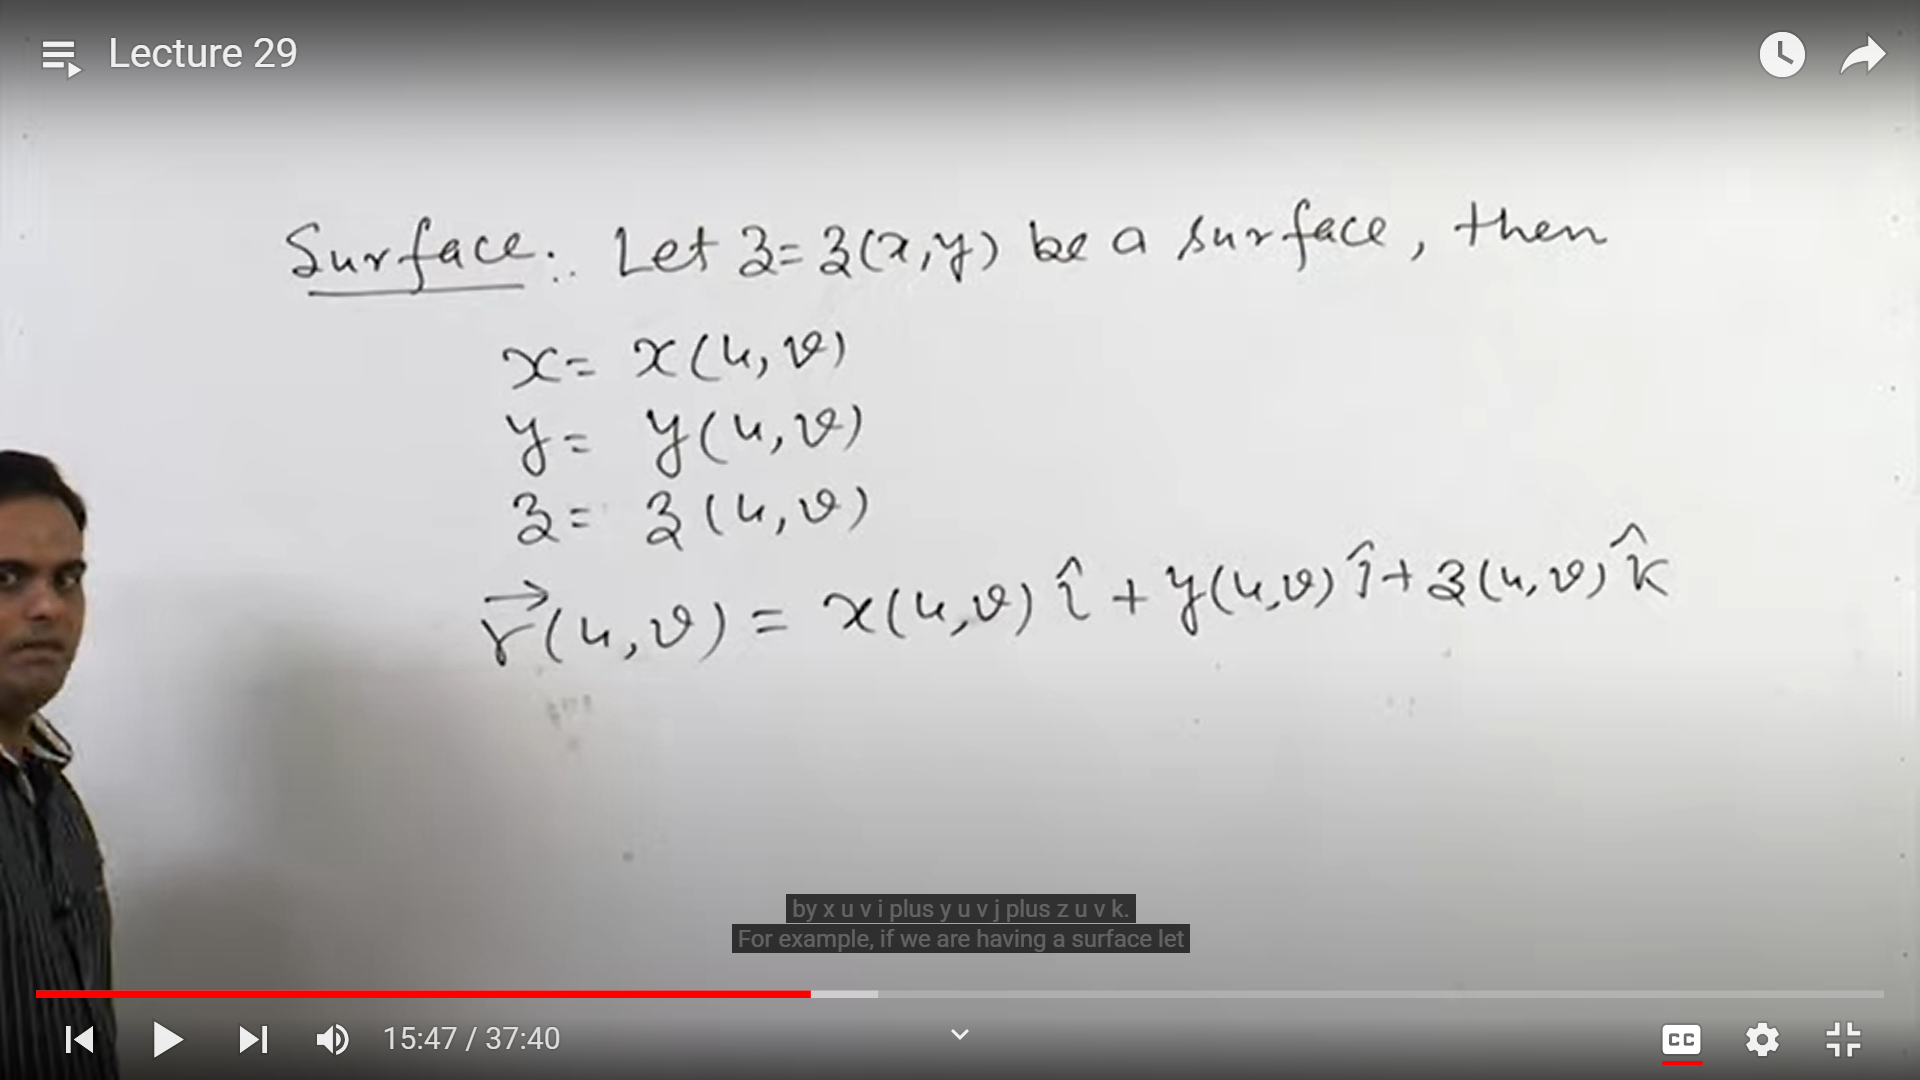 Lecture 29
Surface:. Let z=z(x,y) be a surface, then
x= x(u,v)
y= y(u,v)
z= z(u,v)
r⃗(u,v) = x(u,v) î + y(u,v) ĵ + z(u,v) k̂
by x u v i plus y u v j plus z u v k.
For example, if we are having a surface let
15:47 / 37:40
CC